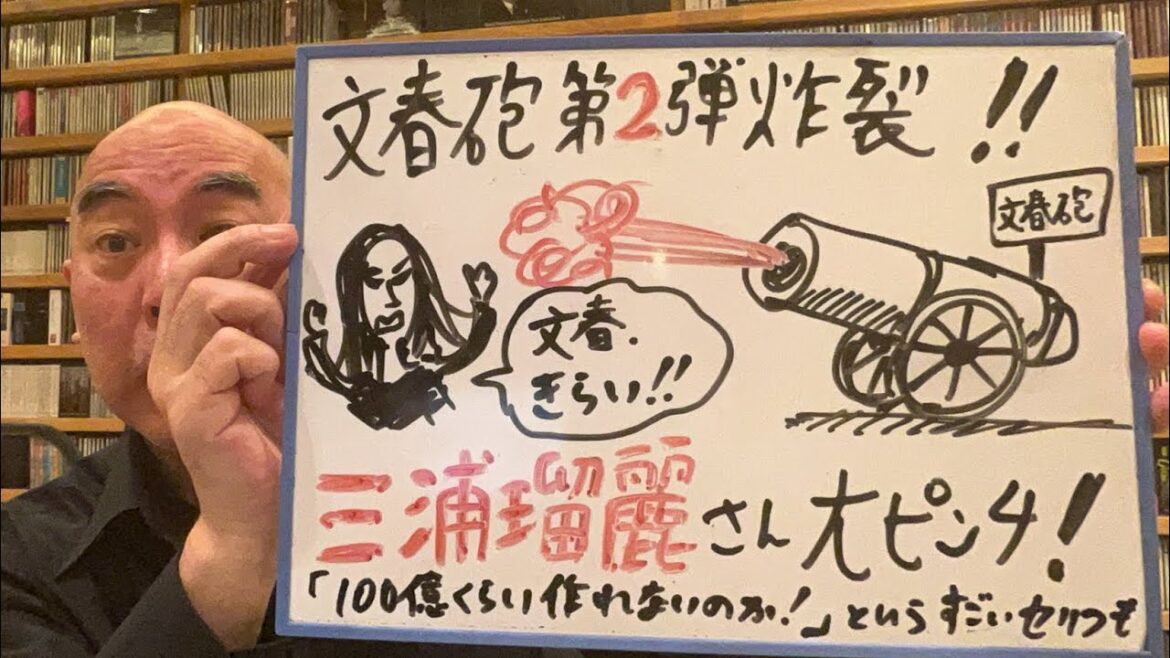 文春砲第2弾炸裂!!
文春砲
文春.
きらい!!
三浦瑠麗さん大ピンチ!
「100億くらい作れないのか!」というすごいセリフも